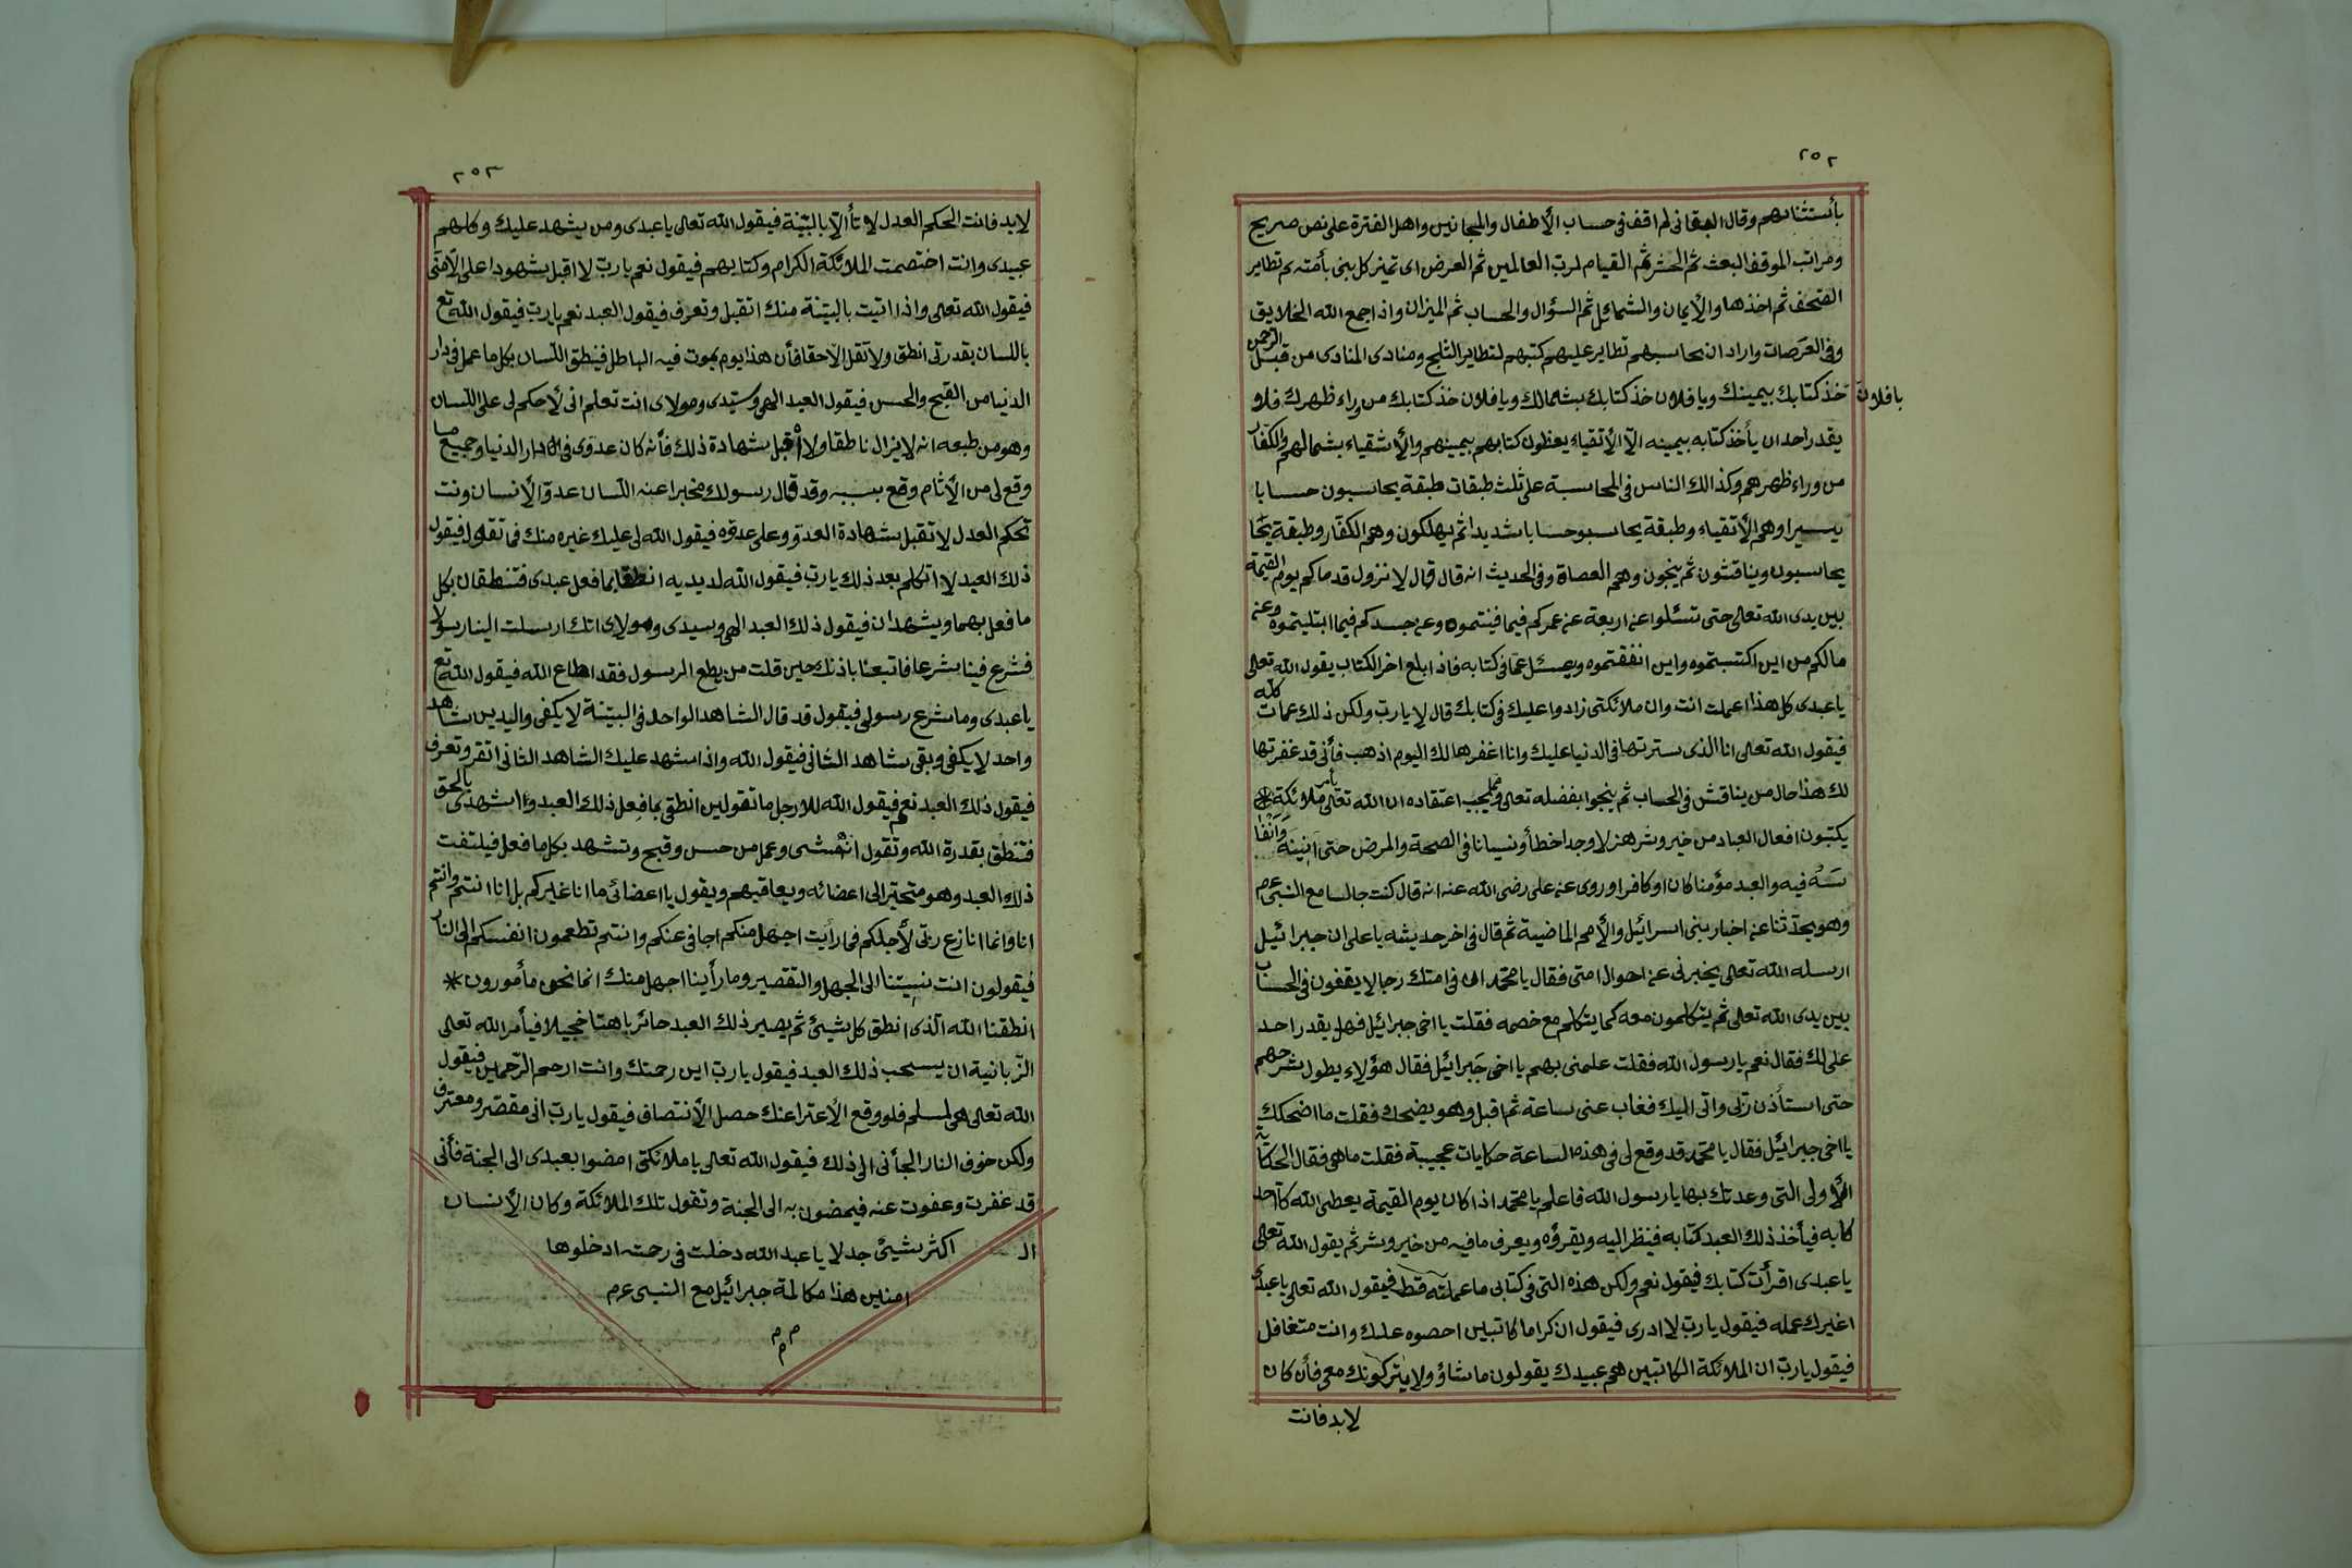 ٢٥٢
بأستثنائهم وقال اللقانى لم اقف فى حساب الأطفال والمجانين واهل الفترة على نص صريح
ومراتب الموقف البعث ثم الحشر ثم القيام لرب العالمين ثم العرض اى تميز كل بنى بأمته ثم تطاير
الصحف ثم اخذها والأيمان والشمائل ثم السؤال والحساب ثم الميزان واذا جمع الله الخلايق
وفى العرصات واراد ان يحاسبهم تطاير عليهم كتبهم لتطاير الثلج ومنادى المنادى من قبل الرحمن
يا فلان خذ كتابك بيمينك ويا فلان خذ كتابك بشمالك ويا فلان خذ كتابك من وراء ظهرك فلا
يقدر احد ان يأخذ كتابه بيمينه الّا الأتقياء يعطون كتابهم بيمينهم والأشقياء بشمالهم والكفار
من وراء ظهرهم وكذالك الناس فى المحاسبة على ثلث طبقات طبقة يحاسبون حسابا
يسيرا وهم الأتقياء وطبقة يحاسبو حسابا شديدا ثم يهلكون وهم الكفار وطبقة يحا
يحاسبون ويناقشون ثم ينجون وهم العصاة وفى الحديث انه قال قال لا نزول قدماكم يوم القيمة
بين يدى الله تعالى حتى تسئلوا عن اربعة عن عمركم فيما فنيتموه وعن جسدكم فيما ابتليتموه وعن
مالكم من اين اكتسبتموه واين انفقتموه ويسئل عما فى كتابه فاذا بلع اخر الكتاب يقول الله تعالى
يا عبدى كل هذا اعملت انت وان ملائكتى زادوا عليك فى كتابك قال لا يا رب ولكن ذلك عملت كله
فيقول الله تعالى انا الذى سترتها فى الدنيا عليك وانا اغفرها لك اليوم اذهب فأنى قد غفرتها
لك هذا حال من يناقش فى الحساب ثم ينجوا بفضله تعالى ومما يجب اعتقاده ان الله تعالى يأمر ملائكة *
يكتبون افعال العباد من خير وشر هزلا وجدا خطأ ونسيانا فى الصحة والمرض حتى انينه وانفا
سه فيه والعبد مؤمنا كان او كافرا وروى عن على رضى الله عنه انه قال كنت جالسا مع النبى عم
وهو يحدثنا عن اخبار بنى اسرائيل والأمم الماضية ثم قال فى اخر حديثه يا على ان جبرائيل
ارسله الله تعالى يخبرنى عن احوال امتى فقال يا محمد ان فى امتك رجالا يقفون فى الحساب
بين يدى الله تعالى ثم يتكلمون معه كما يتكلم مع خصمه فقلت يا اخى جبرائيل فهل يقدر احد
على لك فقال نعم يا رسول الله فقلت علمنى بهم يا اخى جبرائيل فقال هؤلاء يطول شرحهم
حتى استأذن ربى واتى اليك فغاب عنى ساعة ثم اقبل وهو يضحك فقلت ما اضحكك
يا اخى جبرائيل فقال يا محمد قد وقع لى فى هذه الساعة حكايات عجيبة فقلت ما هى فقال الحكاية
الأولى التى وعدتك بها يا رسول الله فاعلم يا محمد اذا كان يوم القيمة يعطى الله كل احد
كتابه فيأخذ ذلك العبد كتابه فينظر اليه ويقرؤه ويعرف مافيه من خير وشر ثم يقول الله تعالى
يا عبدى اقرأت كتابك فيقول نعم ولكن هذه التى فى كتابى ما عملته قط فيقول الله تعالى يا عبدى
اغيرك عمله فيقول يا رب لا ادرى فيقول ان كراما كاتبين احصوه عليك وانت متغافل
فيقول يا رب ان الملائكة الكاتبين هم عبيدك يقولون ما شاؤ ولا يتركونك معى فأن كان
لابد فانت
٢٥٣
لابد فانت الحكم العدل لا تأ الّا بالبيّنة فيقول الله تعالى يا عبدى ومن يشهد عليك وكلهم
عبيدى وانت اختصمت الملائكة الكرام وكتابهم فيقول نعم يا رب لا اقبل شهودا على الّا منّى
فيقول الله تعالى واذا اتيت بالبيّنة منك اتقبل وتعرف فيقول العبد نعم يا رب فيقول الله تع
باللسان بقدرتى انطق ولا تقل الّا حقا فأن هذا يوم يموت فيه الباطل فينطق اللسان بكل ما عمل فى دار
الدنيا من القبح والحسن فيقول العبد الهى وسيّدى ومولاى انت تعلم انى لأحكم لى على اللسان
وهو من طبعه انه لا يزال ناطقا ولا اقبل شهادة ذلك فأنه كان عدوى فى دار الدنيا وجميع ما
وقع لى من الأثام وقع بسببه وقد قال رسولك مخبرا عنه اللسان عدوّ الأنسان ونت
تحكم العدل لا تقبل شهادة العدو وعلى عدوه فيقول الله لى عليك غيره منك فما تقول فيقول
ذلك العبد لا اتكلم بعد ذلك يا رب فيقول الله لديديه انطقا بما فعل عبدى فتنطقان بكل
ما فعل بهما ويشهدان فيقول ذلك العبد الهى وسيدى ومولاى انك ارسلت الينا رسولا
فشرع فينا شرعا فاتبعنا باذنك حين قلت من يطع الرسول فقد اطاع الله فيقول الله تع
يا عبدى وما شرع رسولى فيقول قد قال الشاهد الواحد فى البيّنة لا يكفى واليدين شاهد
واحد لا يكفى وبقى شاهد الثانى فيقول الله واذا شهد عليك الشاهد الثانى اتقر وتعرف
فيقول ذلك العبد نعم فيقول الله للارجل ما تقولين انطقى بما فعل ذلك العبد واشهدى بالحق
فتنطق بقدرة الله وتقول انه مشى وعمل من حسن وقبح وتشهد بكل ما فعل فيلتفت
ذلك العبد وهو متحيّر الى اعضائه ويعاقبهم ويقول يا اعضائى ما انا غيركم بل انا انتم وانتم
انا وانما انازع ربّى لأجلكم فما رأيت اجهل منكم اجافى عنكم وانتم تطعمون انفسكم الى النار
فيقولون انت نسيتنا الى الجهل والتقصير وما رأينا اجهل منك انما نحن مأمورون *
انطقنا الله الّذى انطق كل شيئ ثم يصير ذلك العبد حائر باهتا خجيلا فيأمر الله تعالى
الزّبانية ان يسحب ذلك العبد فيقول يا رب اين رحمتك وانت ارحم الرّاحمين فيقول
الله تعالى هى لمسلم فلو وقع الأعترا عنك حصل الأنتصاف فيقول يا رب انى مقصّر ومعترف
ولكن خوف النار الجأنى الى ذلك فيقول الله تعالى يا ملائكتى امضوا بعبدى الى الجنة فأنى
قد غفرت وعفوت عنه فيمضون به الى الجنة وتقول تلك الملائكة وكان الأنسان
اكثر شيئ جدلا يا عبد الله دخلت فى رحمته ادخلوها
امنين هذا مكالمة جبرائيل مع النبى عم
م م م